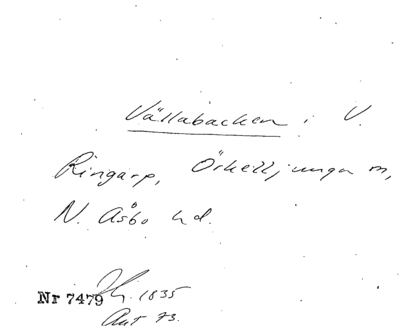 Vällabacken i V.
Ringarp, Örkelljunga m,
N. Åsbo hd.
Nr 7479 1835
Ant 73.